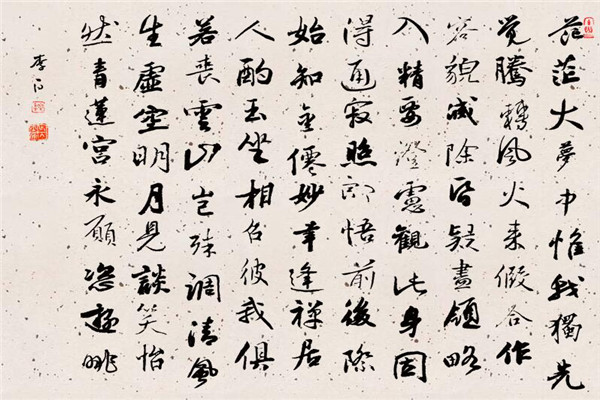 茫茫大夢中惟我獨先
覺騰轉風火來假合作
容貌滅除昏疑盡領略
入精要澄慮觀此身因
得通寂照朗悟前後際
始知金僊妙幸逢禪居
人酌玉坐相召彼我俱
若喪雲山豈殊調清風
生虛空明月見談笑怡
然青蓮宮永願恣遊眺
李